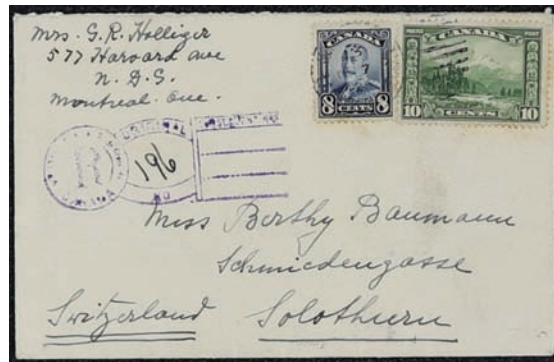 Mrs. G. R. Holliger
577 Harvard ave
N. D. G.
Montreal. Que.
CANADA
8 CENTS 8
CANADA
10 CENTS 10
R
ORIGINAL
196
NO
Miss Berthy Baumann
Schmiedengasse
Switzerland Solothurn